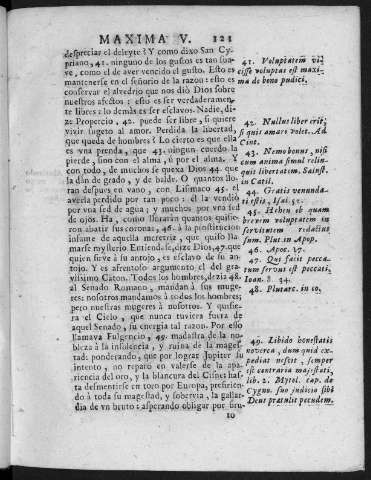 MAXIMA V. 323
despreciar el deleyte? Y como dixo San Cy-
priano, 41. ninguno de los gustos es tan sua-
ve, como el de aver vencido el gusto. Esto es
mantenerse en el señorio de la razon: esto es
conservar el alvedrio que nos diò Dios sobre
nuestros afectos: esto es ser verdaderamen-
te libres: o lo demàs es ser esclavos. Nadie, di-
ze Propercio, 42. puede ser libre, si quiere
vivir sugeto al amor. Perdida la libertad,
que queda de hombres? Lo cierto es que ella
es vna prenda, que 43. ningun cuerdo la
pierde, sino con el alma, ù por el alma. Y
con todo, de muchos se quexa Dios 44. que
la dàn de grado, y de balde. O quantos llo-
ran despues en vano, con Lisimaco 45. el
averla perdido por tan poco: èl la vendiò
por vna sed de agua; y muchos por vna sed
de ojos. Ha, como lloraràn quantos quisie-
ron abatir sus coronas, 46. à la prostitucion
infame de aquella meretriz, que quiso lla-
marse mysterio! Entiende se, dize Dios, 47. que
quien sirve à su antojo, es esclavo de su an-
tojo. Y es afrentoso argumento el del gra-
vissimo Caton. Todos los hombres, dezia 48.
al Senado Romano, mandan à sus muge-
res: nosotros mandamos à todos los hombres;
pero nuestras mugeres à nosotros. Y quisie-
ra el Cielo, que nunca tuviera fuera de
aquel Senado, su energia tal razon. Por esso
llamava Fulgencio, 49. madastra de la no-
bleza à la insolencia, y ruina de la mages-
tad: ponderando, que por lograr Jupiter su
intento, no reparò en valerse de la apa-
riencia del oro, y la blancura del Cisne; has-
ta desmentirse en toro por Europa, prefirien-
do à toda su magestad, y sobervia, la gallar-
dia de vn bruto: asperando obligar por bru-
to
41. Voluptatem vi-
cisse voluptas est maxi-
ma de bono pudici.
42. Nullus liber erit,
si quis amari volet. Ad
Cint.
43. Nemo bonus, nisi
cum anima simul relin-
quit libertatem. Salust.
in Catil.
44. Gratis venunda-
ti estis, Isai. 52.
45. Heheu ob quam
brevem voluptatem in
servitutem redactus
sum. Plut. in Apop.
46. Apoc. 17.
47. Qui facit pecca-
tum servus est peccati,
Ioan. 8. 34.
48. Plutarc. in eo.
49. Libido honestatis
noverca, dum quid ex-
pediat nescit, semper
est contraria majestati,
lib. 2. Mytol. cap. de
Cygno. suo judicio sibi
Deus prætulit pecudem.